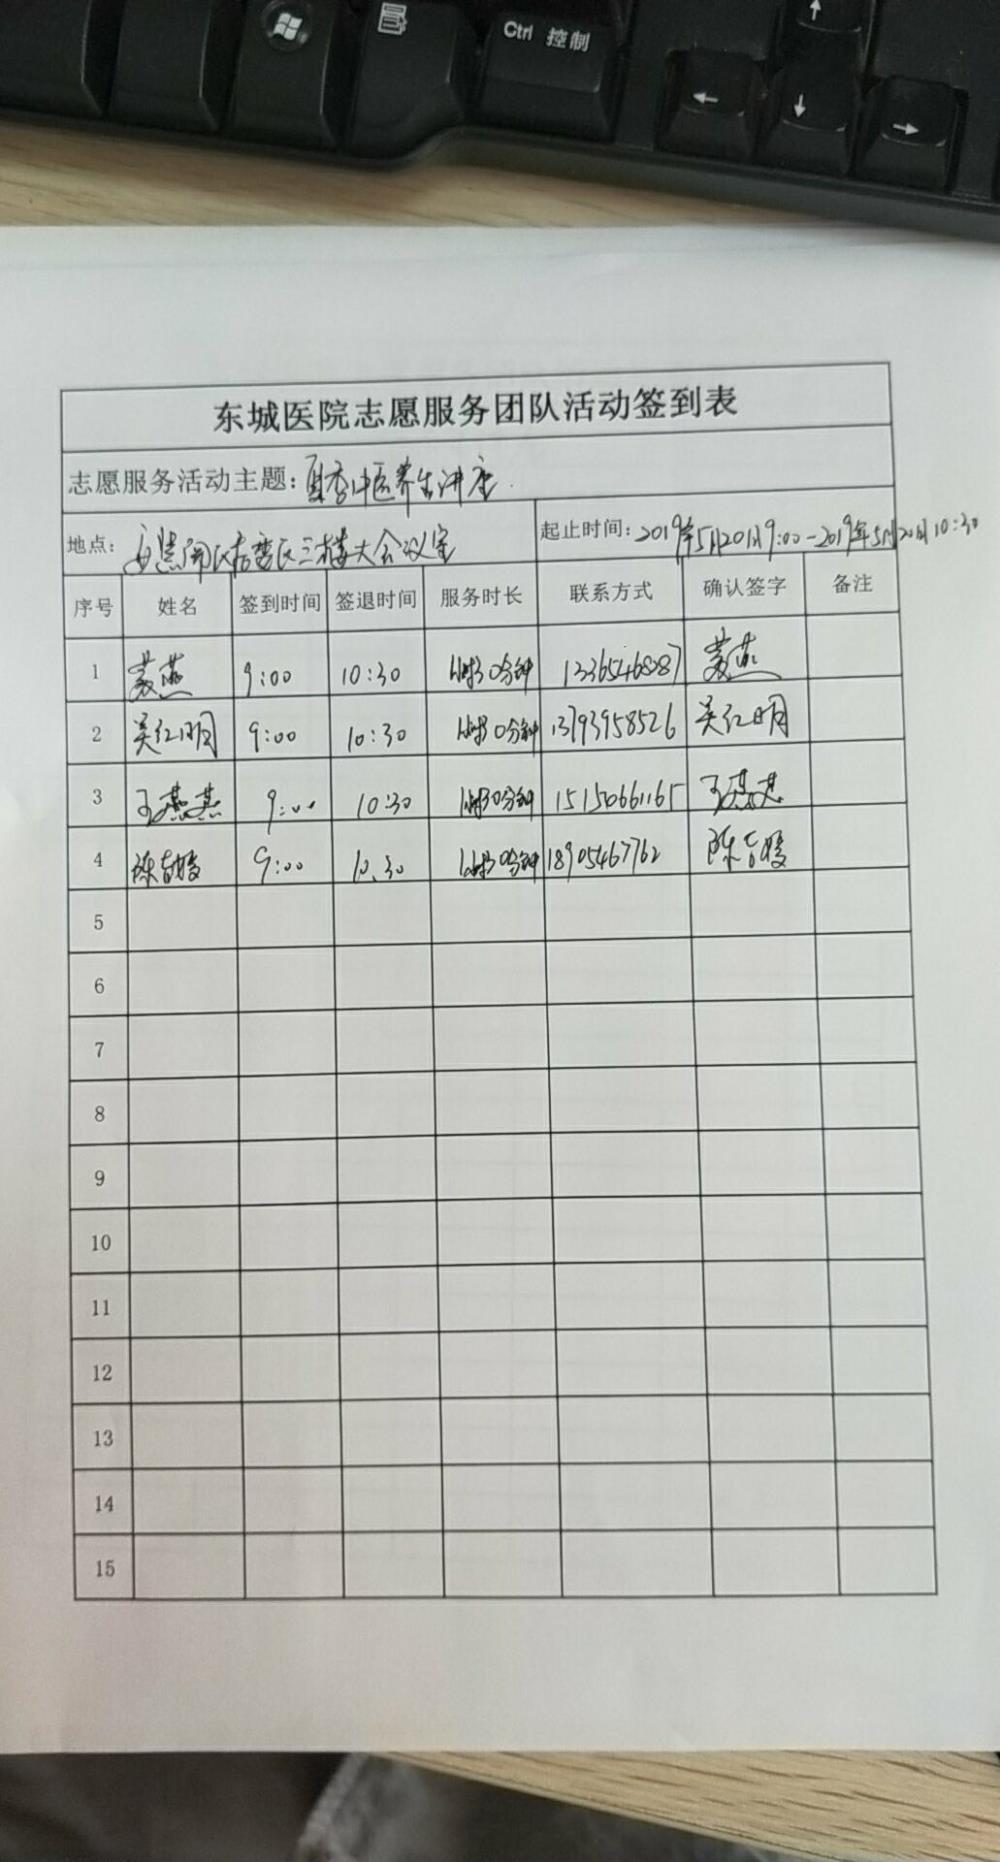 Ctrl 控制
东城医院志愿服务团队活动签到表
志愿服务活动主题：夏季中医养生讲座
地点： 三楼大会议室 起止时间：2019年5月20日9:00-2019年5月20日10:30
序号 姓名 签到时间 签退时间 服务时长 联系方式 确认签字 备注
1 燕 9:00 10:30 1小时30分钟 燕
2 吴红明 9:00 10:30 1小时30分钟 13793958526 吴红明
3 王燕燕 9:00 10:30 1小时30分钟 15150661165 王燕燕
4 陈 9:00 10:30 1小时30分钟 18905467762 陈
5
6
7
8
9
10
11
12
13
14
15